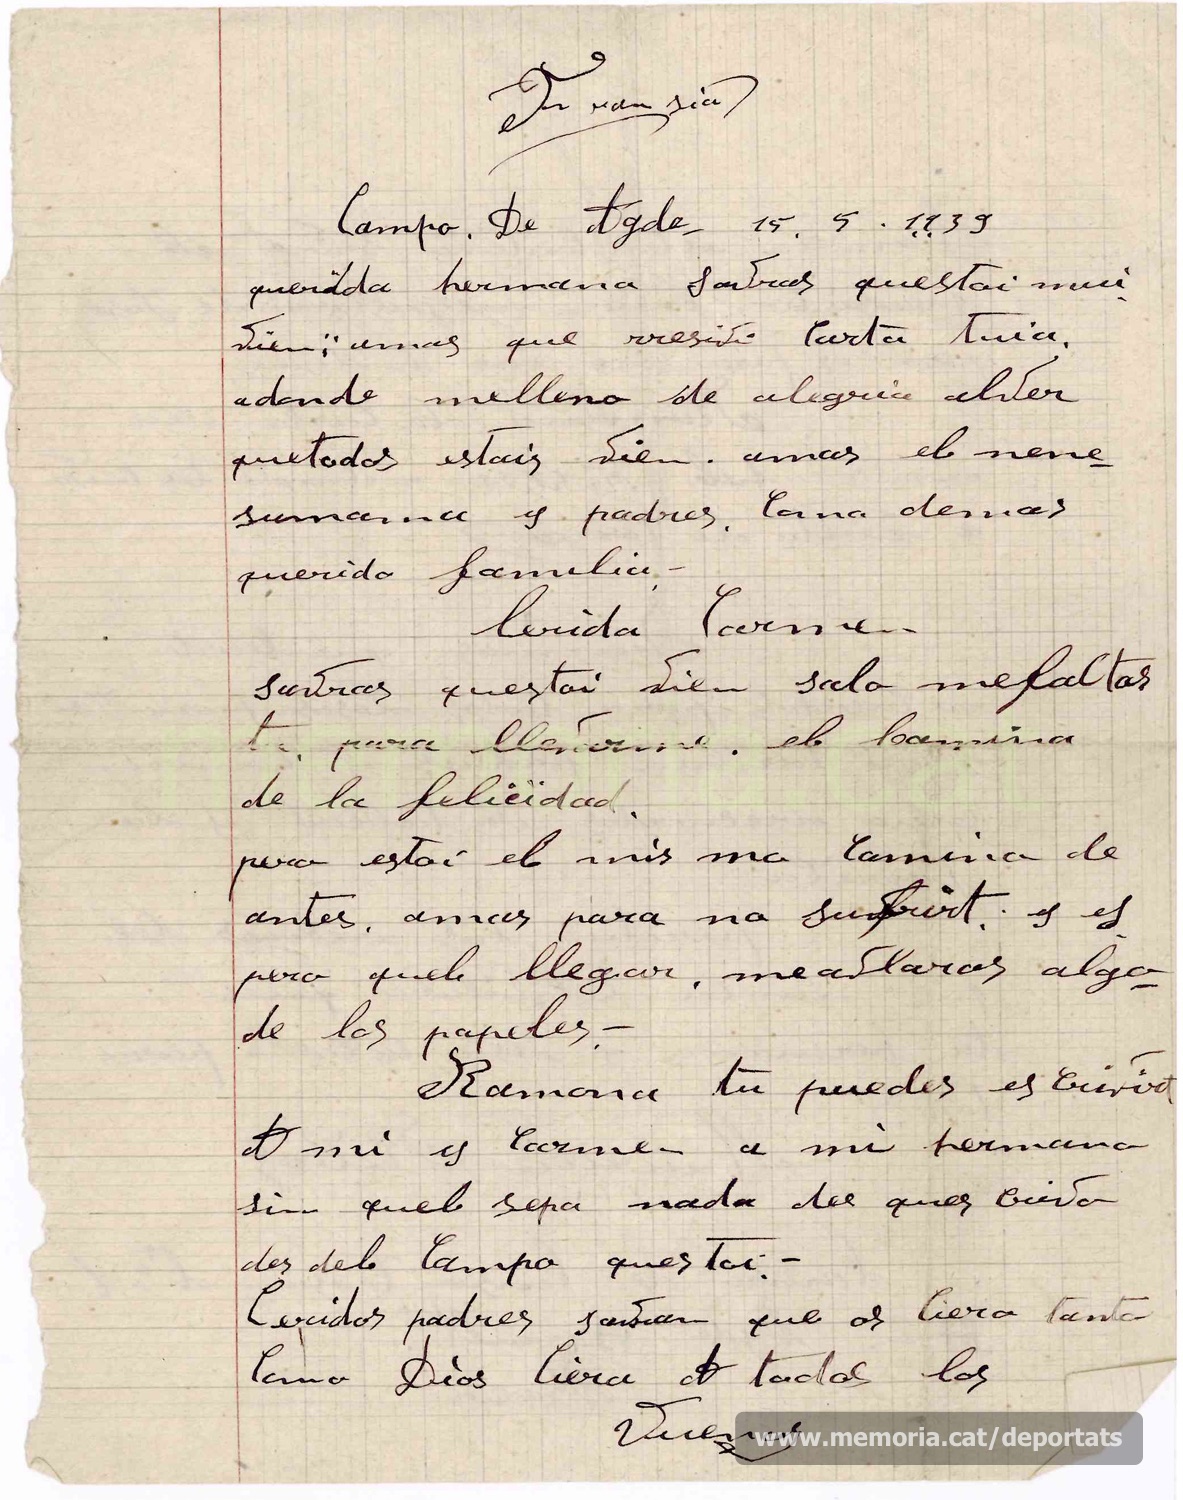 Fr ran sia
Campo. De Agde, 15. 5. 1939
querida hermana savras questoi mui
vien; amas que rresivi carta tuia,
adonde melleno de alegria alver
quetodos estais vien. amas el nene
sumama y padres, como demas
querido familia,-
Cerida Carmen
savras questoi vien solo mefaltas
tu, para llevarme. el camino
de la felicidad.
pero estoi el mis mo camino de
antes, amas para no sufrirt. y es
pero quel llegar, meavlaras algo
de los papeles,-
Ramona tu puedes es crivirt
A mi y Carmen a mi hermano
sin quel sepa nada des ques crivo
des del campo ques toi,-
Ceridos padres savran que os ciero tanto
como Dios ciera A todos los
vuenos
www.memoria.cat/deportats